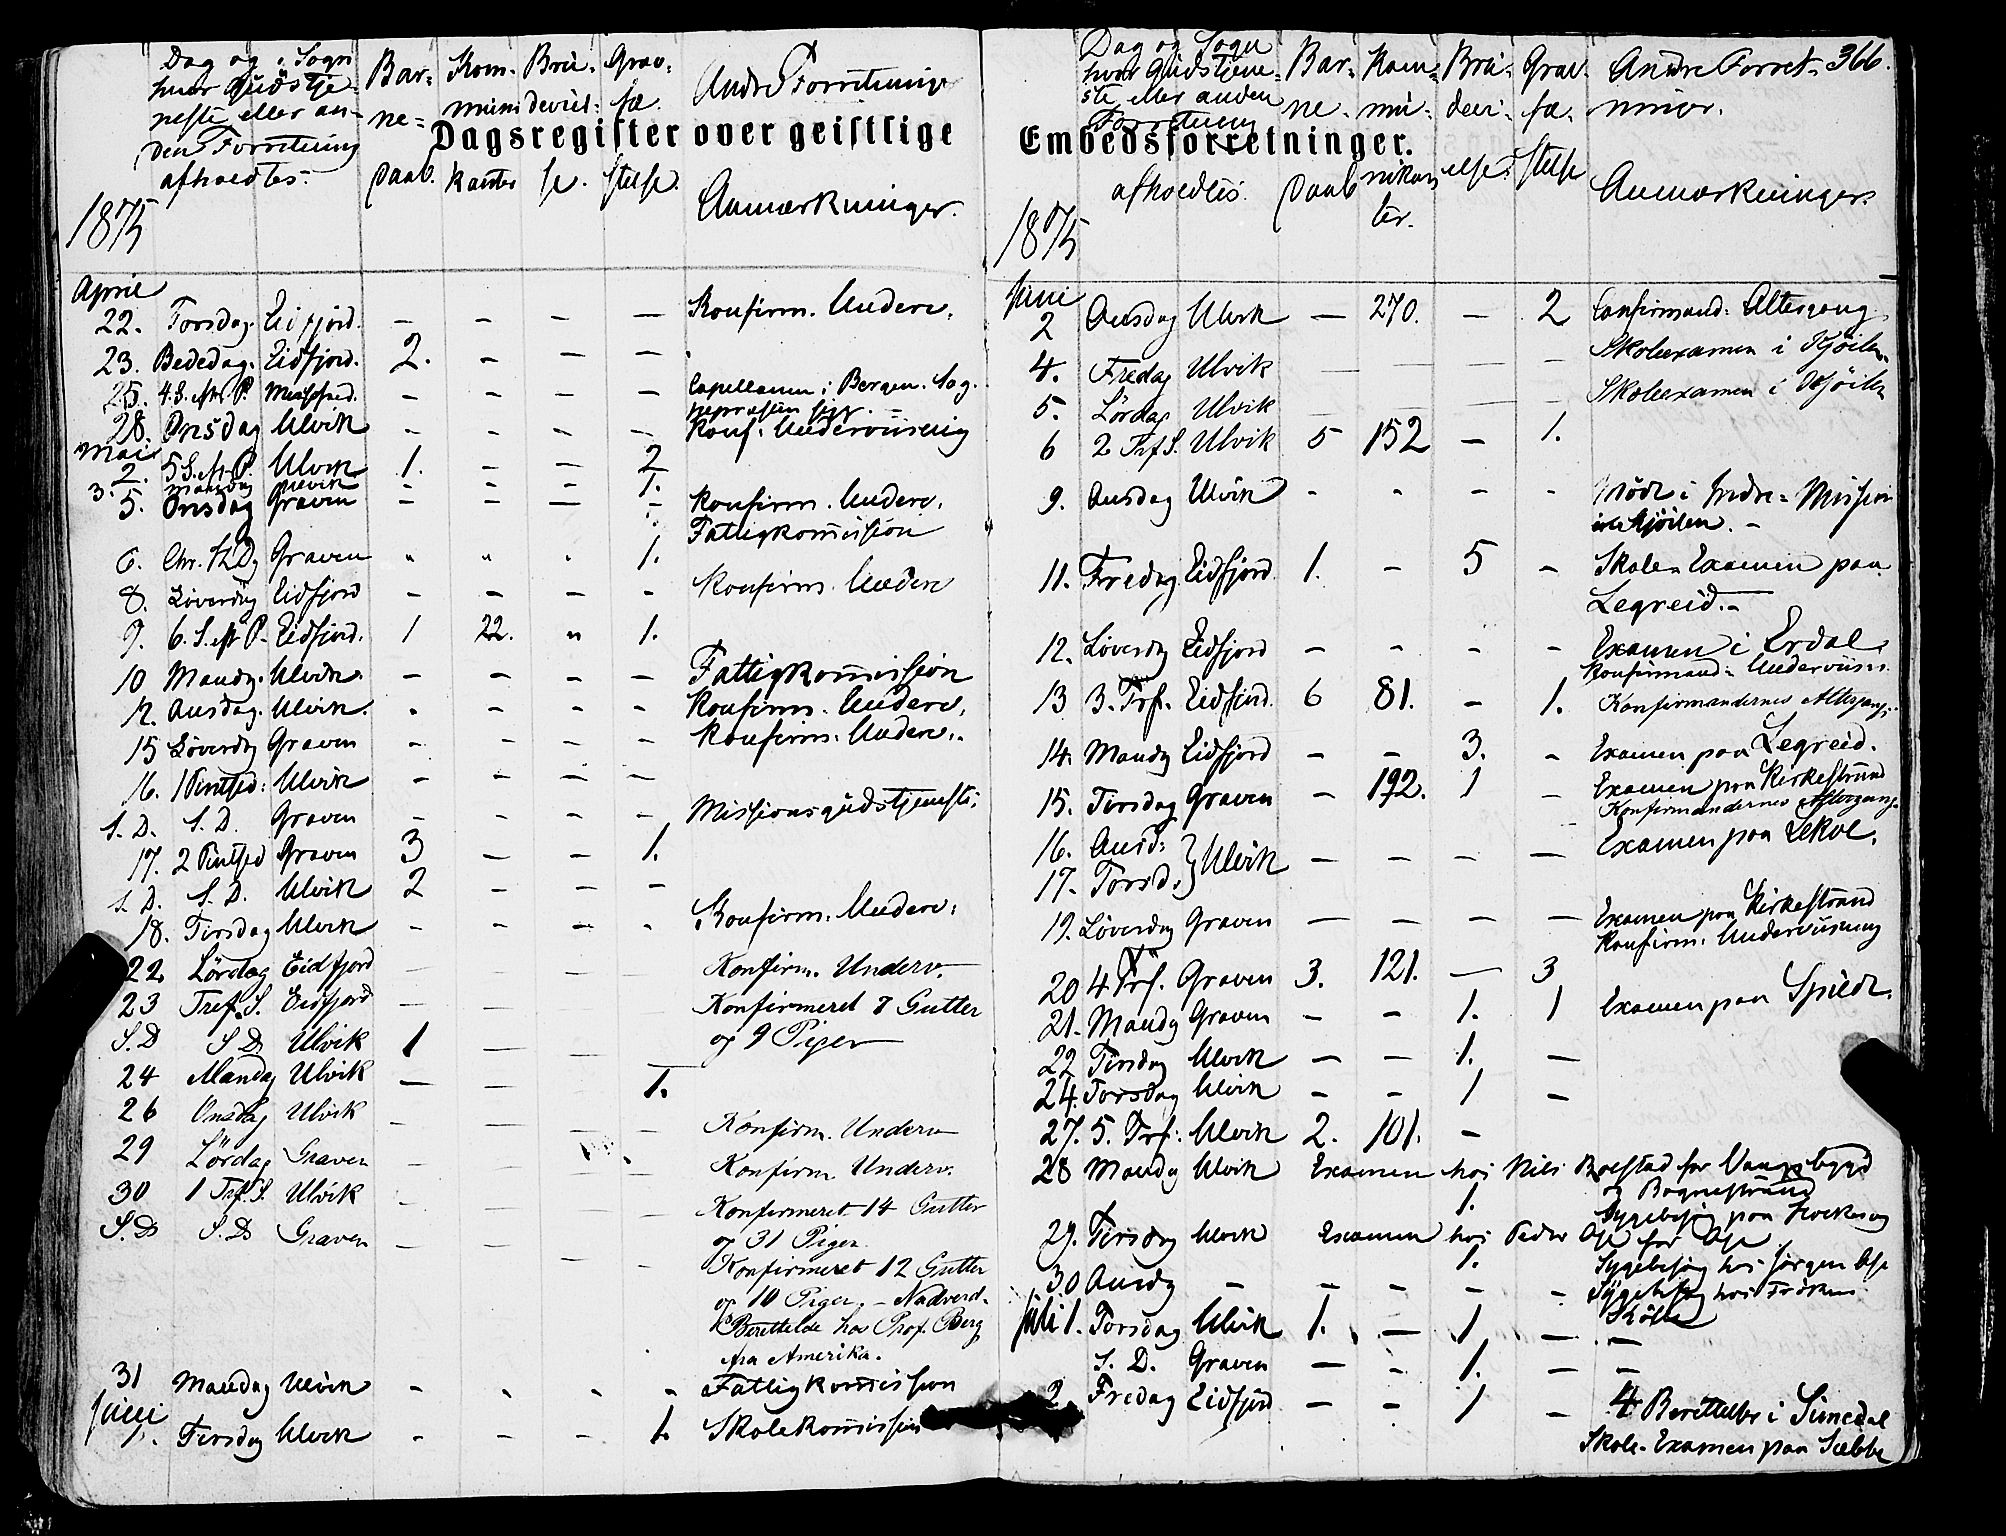 Dag og Sogn
hvor Gudstje-
neste eller an-
den Forretning
afholdtes.
Bar-
ne-
daab.
Kom-
muni
kanter
Bru-
deviel-
se.
Grav-
fæ-
stelse.
Andre Forretninger
Anmærkninger.
Dagsregister over geistlige
1875
April
22. Torsdag. Eidfjord. – – – – Konfirm. Underv.
23. Bededag. Eidfjord. 2. – – –
25. 4. S. eft. P. – – – – Capellanen i Bergen. Sog.
28. Onsdag Ulvik – – – – Konf. Underviisning
Mai
2. 5 S. eft. P. Ulvik 1. – – 2
3. Mandag Ulvik – – – 1.
5. Onsdag Graven – – – – Konfirm. Underv.
Fattigkomission
6. Chr. H. D. Graven " " " 1.
8. Løverdag Eidfjord – – – – Konfirm. Underv
9. 6. S. eft P. Eidfjord. 1 22. " 1.
10 Mandag. Ulvik. – – – – Fattigkomission
12. Onsdag. Ulvik. – – – – Konfirm. Underv.
15 Løverdag Graven – – – – Konfirm. Underv.
16. 1 Pintsed: Ulvik – – – –
S. D. S. D. Graven – – – – Missionsgudstjeneste.
17. 2 Pintsed Graven 3 – – 1.
S. D. S. D. Ulvik 2 – – –
18. Tirsdag Ulvik – – – – Konfirm. Underv.
22 Lördag Eidfjord – – – – Konfirm. Underv.
23 Tref. S. Eidfjord – – – – Konfirmeret 8 Gutter
og 9 Piger
S. D S D Ulvik 1 – – –
24 Mandag Ulvik – – – 1.
26 Onsdag Ulvik – – – – Konfirm. Underv
29 Lördag Graven – – – – Konfirm Underv.
30 1 Trf. S. Ulvik – – – – Konfirmeret 14 Gutter
og 31 Piger.
S. D S. D Graven – – – – Konfirmeret 12 Gutter
og 10 Piger. – Nadverd.
Berettelse hos Prof. Berg
fra Amerika.
31 Mandag Ulvik – – – – Fattigkomission
Juni
1. Tirsdag Ulvik – – – 1. Skolekomission
Dag og Sogn
hvor Gudstjene-
ste eller anden
Forretning
afholdtes.
Bar-
ne-
daab
Kom-
mu-
nikan
ter.
Bru-
devi-
else.
Grav-
fæ-
stelse
Andre Forret-
ninger.
Anmærkninger.
366.
Embedsforretninger.
1875
Juni
2 Onsdag Ulvik – 270. – 2 Confirmand. Altergang
4. Fredag Ulvik – – – – Skoleexamen i
5. Lördag Ulvik – – – – Skoleexamen i
6 2 Trf S. Ulvik 5 152 – 1.
9. Onsdag Ulvik – – – – Möde i Indre-Mission
11. Fredag Eidfjord. 1. – 5 – Skole-Examen paa
Legreid.–
12. Løverdag Eidfjord – – – – Examen i Erdal.
Konfirmand- Underviisn.
13 3. Trf. Eidfjord. 6 81. – 1. Konfirmandernes Altergang.
14. Mandag Eidfjord – – 3. – Examen paa Legreid.
15. Tirsdag Graven – 192. 1 – Examen paa Kirkestrand
Konfirmandernes Altergang.
16. Onsd. } Ulvik – – – – Examen paa Lekve.
17. Torsd.
19. Løverdag Graven – – – – Examen paa Kirkestrand
Konfirm. Underviisning
20 4 Trf. Graven 3. 121. – 3
21. Mandag Graven – – 1. 1 Examen paa Spilde.
22 Tirsdag Ulvik – – 1. –
24. Torsdag Ulvik – – 1 –
27. 5. Trf. Ulvik 2. 101. –
28 Mandag Ulvik Examen hos Nils Bolstad for Vangsbygd
og
1. Sygebesøg paa
29. Tirsdag Ulvik Examen hos Peder Ose for Ose
1. Sygebesøg hos Jørgen Ose
30 Onsdag – – – – – Sygebesøg hos Frøken
Juli 1. Torsdag Ulvik 1. – 1 – –
S. D. Graven – – 1. – –
2 Fredag Eidfjord – – 1 – 4 Berettelser i Simedal
Skole-Examen paa Sæbbe